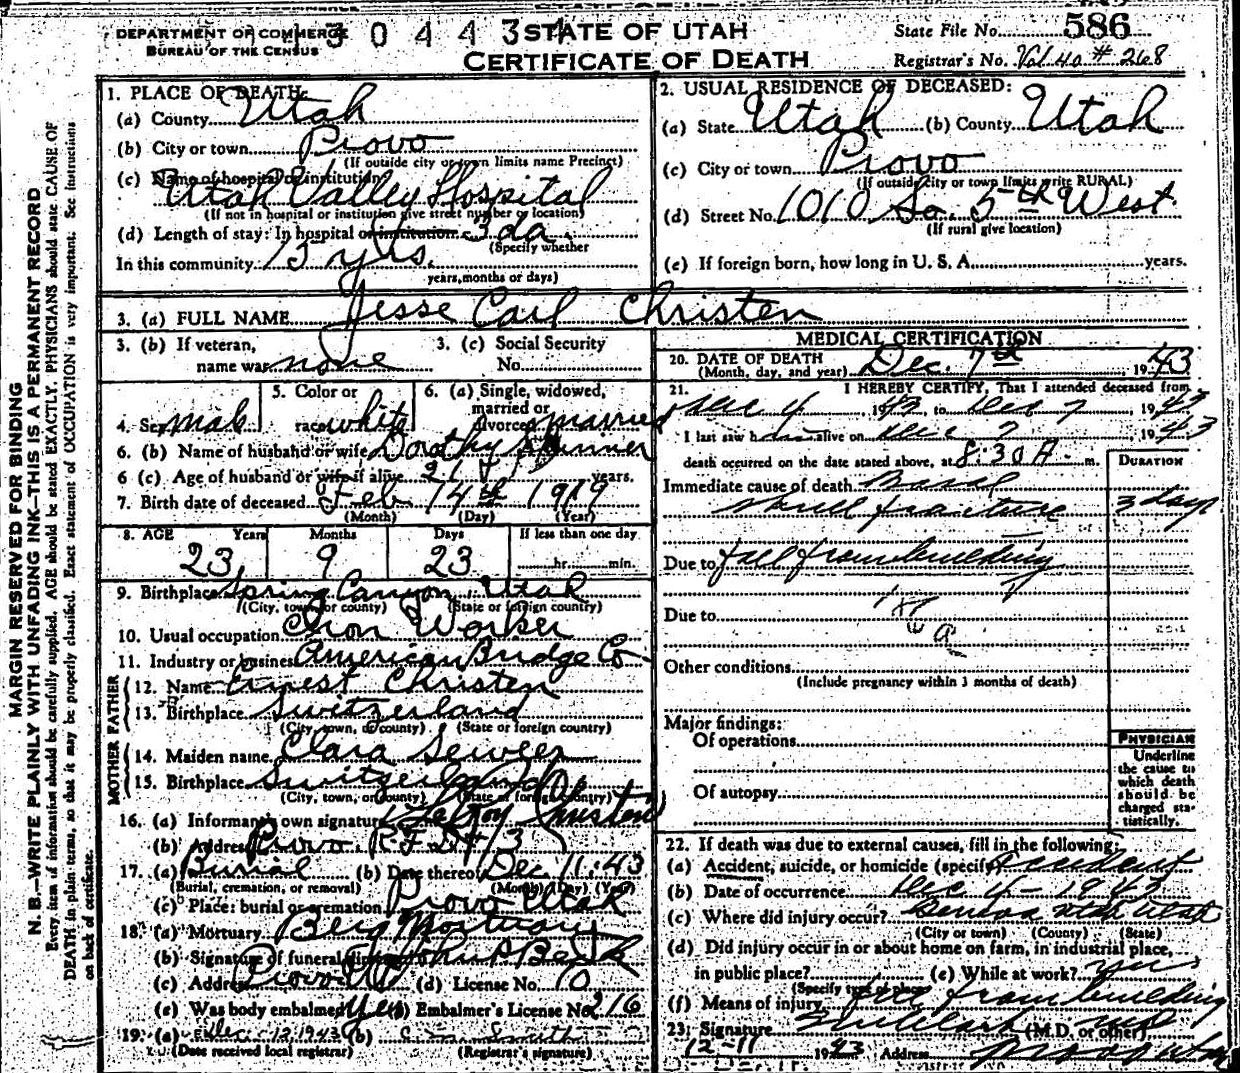 DEPARTMENT OF COMMERCE
BUREAU OF THE CENSUS
3 0 4 4 3 4
STATE OF UTAH
CERTIFICATE OF DEATH
State File No. 586
Registrar's No. Vol 40 # 268
MARGIN RESERVED FOR BINDING
N. B.—WRITE PLAINLY WITH UNFADING INK—THIS IS A PERMANENT RECORD
Every item of information should be carefully supplied. AGE should be stated EXACTLY. PHYSICIANS should state CAUSE OF
DEATH in plain terms, so that it may be properly classified. Exact statement of OCCUPATION is very important. See instructions
on back of certificate.
1. PLACE OF DEATH:
(a) County Utah
(b) City or town Provo
(If outside city or town limits name Precinct)
(c) Name of hospital or institution
Utah Valley Hospital
(If not in hospital or institution give street number or location)
(d) Length of stay: In hospital or institution 3 da
(Specify whether
In this community 15 yrs.
years, months or days)
2. USUAL RESIDENCE OF DECEASED:
(a) State Utah (b) County Utah
(c) City or town Provo
(If outside city or town limits write RURAL)
(d) Street No. 1010 So. 5th West
(If rural give location)
(e) If foreign born, how long in U. S. A. years.
3. (a) FULL NAME Jesse Carl Christen
3. (b) If veteran,
name war none
3. (c) Social Security
No.
4. Sex male
5. Color or
race white
6. (a) Single, widowed,
married or
divorced married
6. (b) Name of husband or wife Dorothy
6. (c) Age of husband or wife if alive 21 years.
7. Birth date of deceased Feb 14th 1919
(Month) (Day) (Year)
8. AGE Years Months Days If less than one day
23 9 23 hr. min.
9. Birthplace Spring Canyon Utah
(City, town, or county) (State or foreign country)
10. Usual occupation Iron Worker
11. Industry or business American Bridge Co
FATHER
12. Name Ernest Christen
13. Birthplace Switzerland
(City, town, or county) (State or foreign country)
MOTHER
14. Maiden name Clara
15. Birthplace Switzerland
(City, town, or county) (State or foreign country)
16. (a) Informant's own signature LeRoy Christen
(b) Address Provo R F D # 3
17. (a) Burial (b) Date thereof Dec 11 43
(Burial, cremation, or removal) (Month) (Day) (Year)
(c) Place: burial or cremation Provo Utah
18. (a) Mortuary Berg Mortuary
(b) Signature of funeral director
(c) Address Provo (d) License No. 10
(e) Was body embalmed Yes Embalmer's License No. 216
19. (a) Dec 12 1943 (b) Smith
(Date received local registrar) (Registrar's signature)
MEDICAL CERTIFICATION
20. DATE OF DEATH
(Month, day, and year) Dec. 7th, 1943
21. I HEREBY CERTIFY, That I attended deceased from
Dec 4, 1943, to Dec 7, 1943
I last saw him alive on Dec 7, 1943
death occurred on the date stated above, at 8:30 A. m.
DURATION
Immediate cause of death Basal
skull fracture 3 days
Due to fall from building
Due to
Other conditions
(Include pregnancy within 3 months of death)
Major findings:
Of operations
Of autopsy
PHYSICIAN
Underline
the cause to
which death
should be
charged sta-
tistically.
22. If death was due to external causes, fill in the following:
(a) Accident, suicide, or homicide (specify) Accident
(b) Date of occurrence Dec 4 - 1943
(c) Where did injury occur? Geneva Utah Utah
(City or town) (County) (State)
(d) Did injury occur in or about home on farm, in industrial place,
in public place? (e) While at work? yes
(Specify type of place)
(f) Means of injury fall from building
23. Signature Clark (M.D. or other) MD
12-11 1943 Address Provo Utah